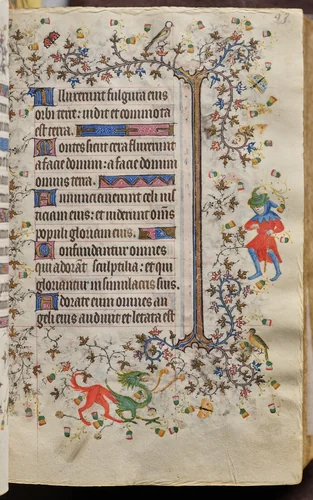 93
Alluxerunt fulgura eius
orbi terre: uidit et commota
est terra.
Montes sicut cera fluxerunt
a facie domini: a facie domini
omnis terra.
Annunciauerunt celi ius
ticiam eius: et uiderunt om̅s
populi gloriam eius.
Confundantur omnes
qui adorāt sculptilia: et qui
gloriantur in simulacris suis.
Adorate eum omnes an
geli eius audiuit et letata est